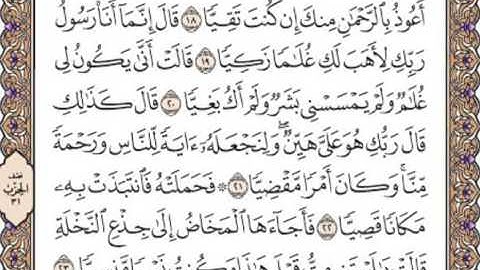 أَعُوذُ بِٱلرَّحۡمَٰنِ مِنكَ إِن كُنتَ تَقِيّٗا ١٨ قَالَ إِنَّمَآ أَنَا۠ رَسُولُ
رَبِّكِ لِأَهَبَ لَكِ غُلَٰمٗا زَكِيّٗا ١٩ قَالَتۡ أَنَّىٰ يَكُونُ لِي
غُلَٰمٞ وَلَمۡ يَمۡسَسۡنِي بَشَرٞ وَلَمۡ أَكُ بَغِيّٗا ٢٠ قَالَ كَذَٰلِكِ
قَالَ رَبُّكِ هُوَ عَلَيَّ هَيِّنٞۖ وَلِنَجۡعَلَهُۥٓ ءَايَةٗ لِّلنَّاسِ وَرَحۡمَةٗ
مِّنَّاۚ وَكَانَ أَمۡرٗا مَّقۡضِيّٗا ٢١ ۞ فَحَمَلَتۡهُ فَٱنتَبَذَتۡ بِهِۦ
مَكَانٗا قَصِيّٗا ٢٢ فَأَجَآءَهَا ٱلۡمَخَاضُ إِلَىٰ جِذۡعِ ٱلنَّخۡلَةِ
نصف
الحزب
٣١